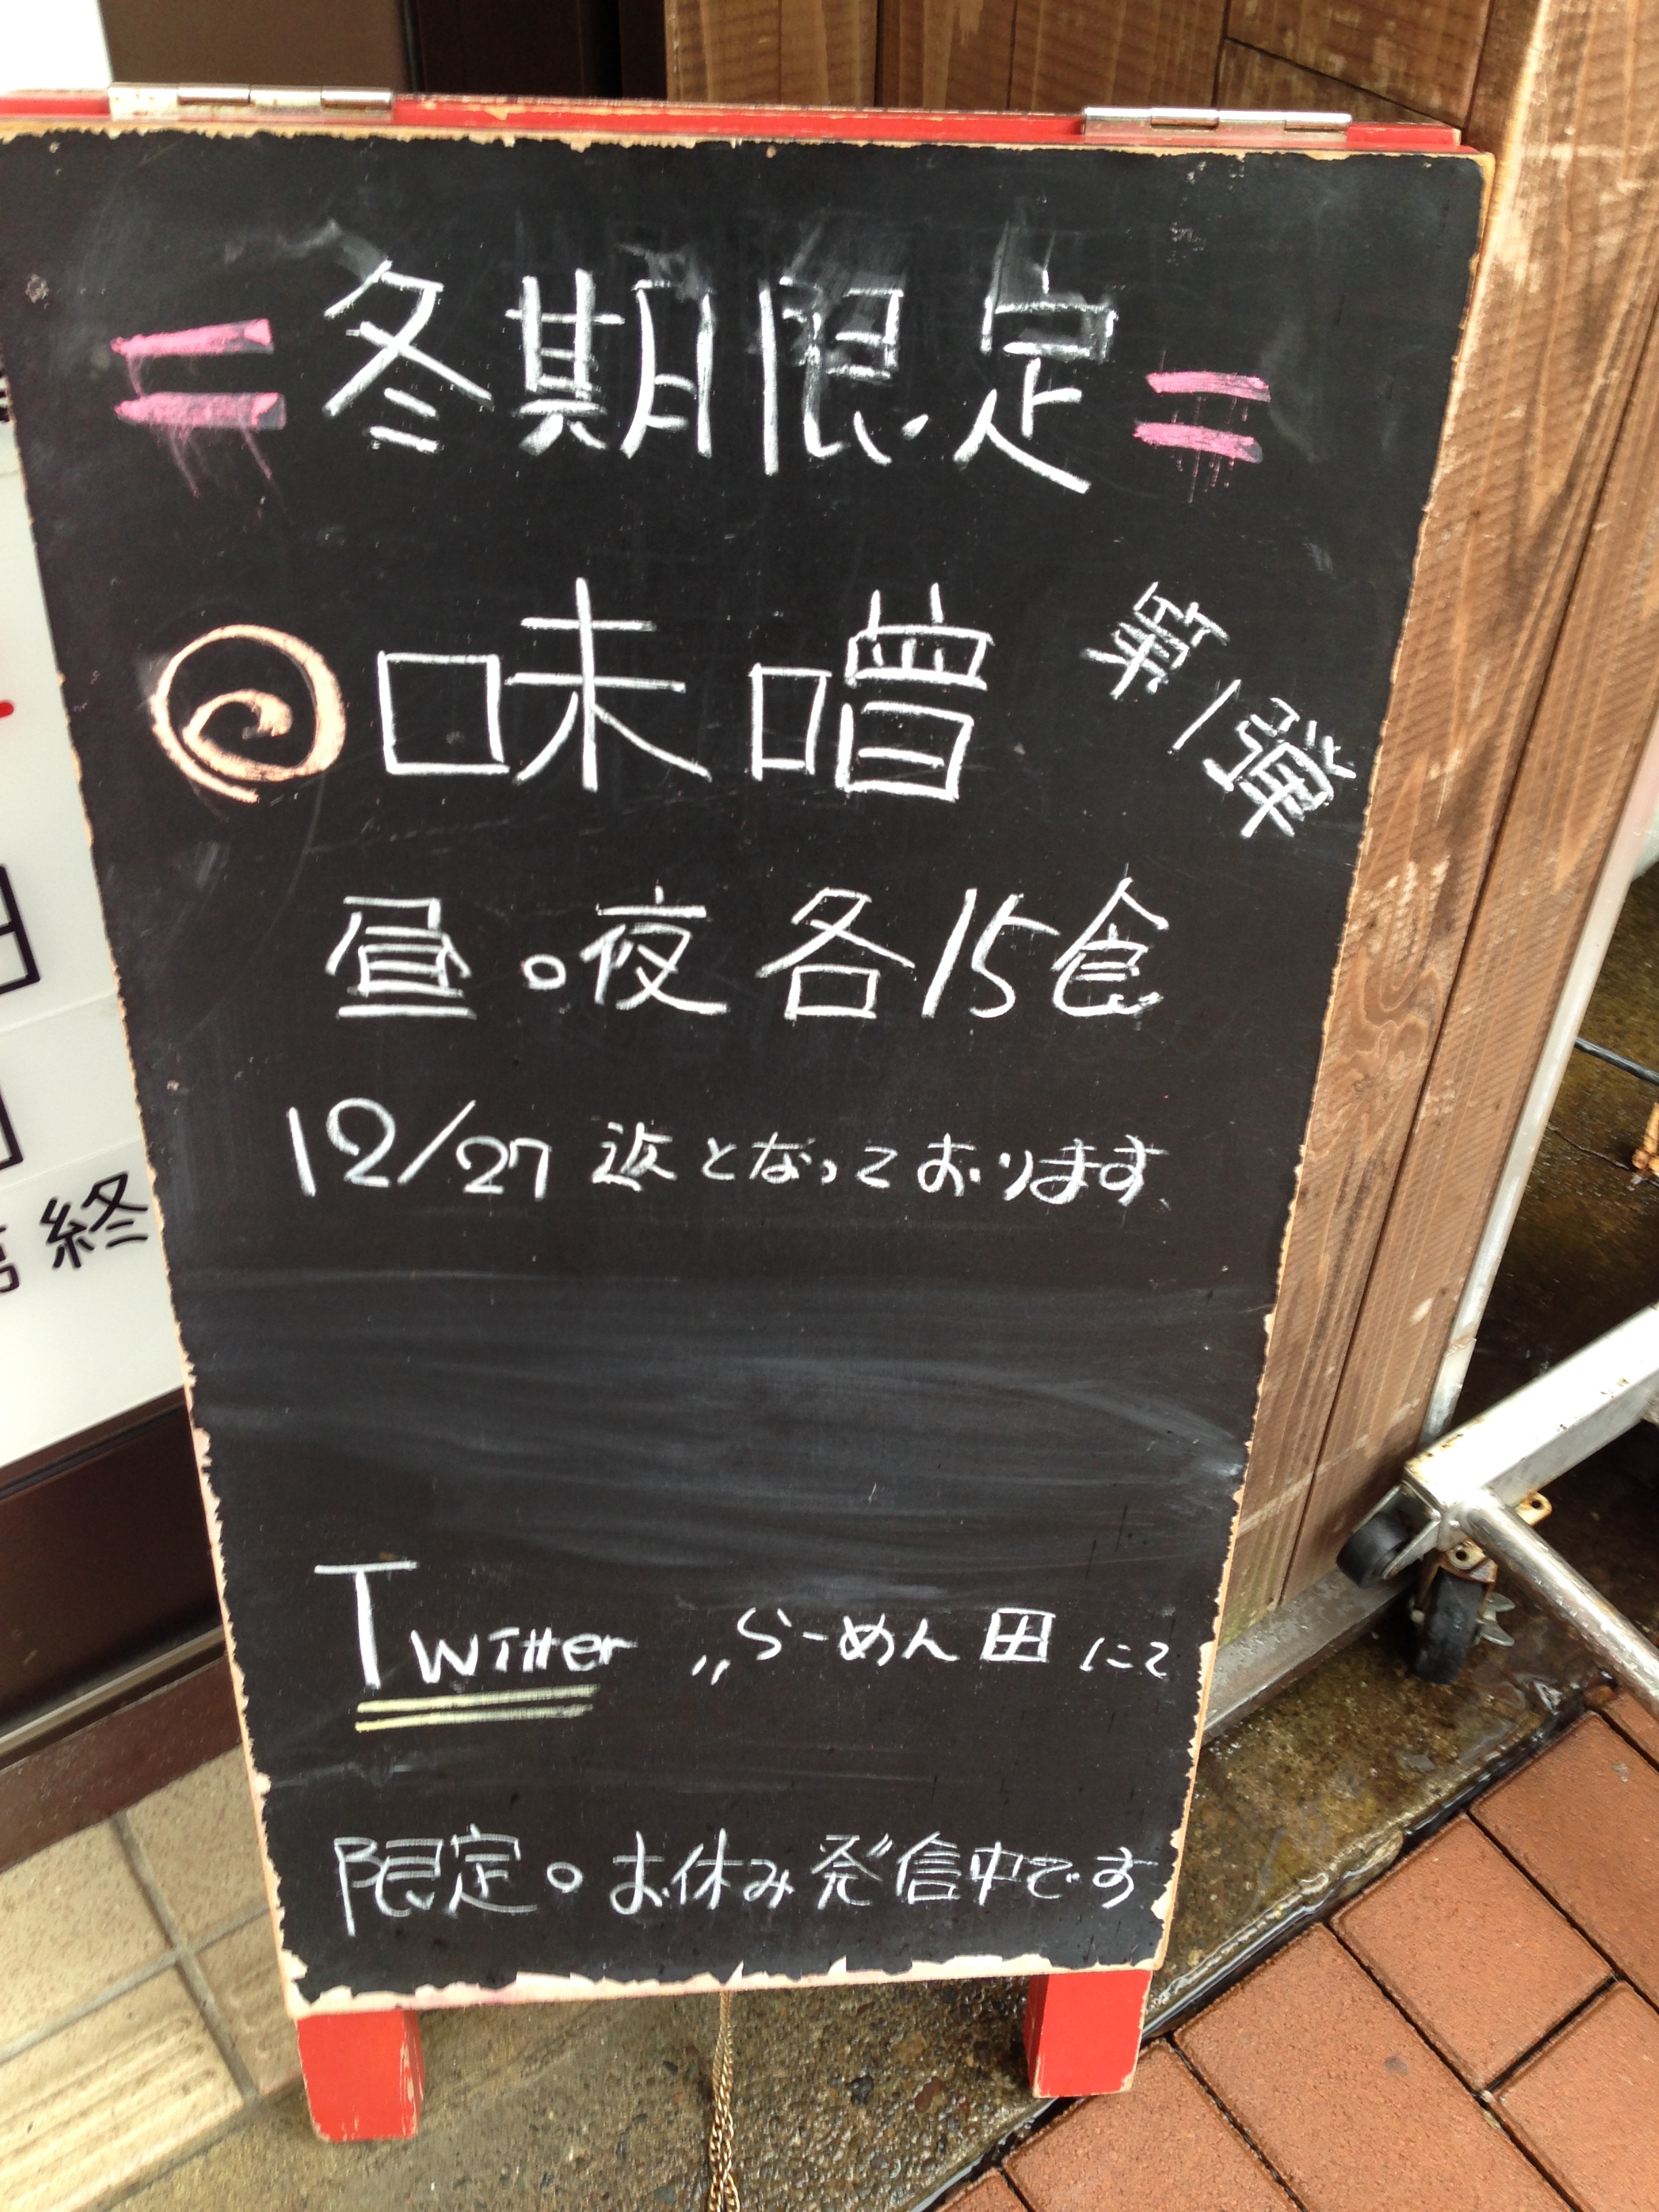 =冬期限定=
味噌 第1弾
昼。夜 各15食
12/27 迄となっております
Twitter 〃らーめん田にて
限定。お休み発信中です
終